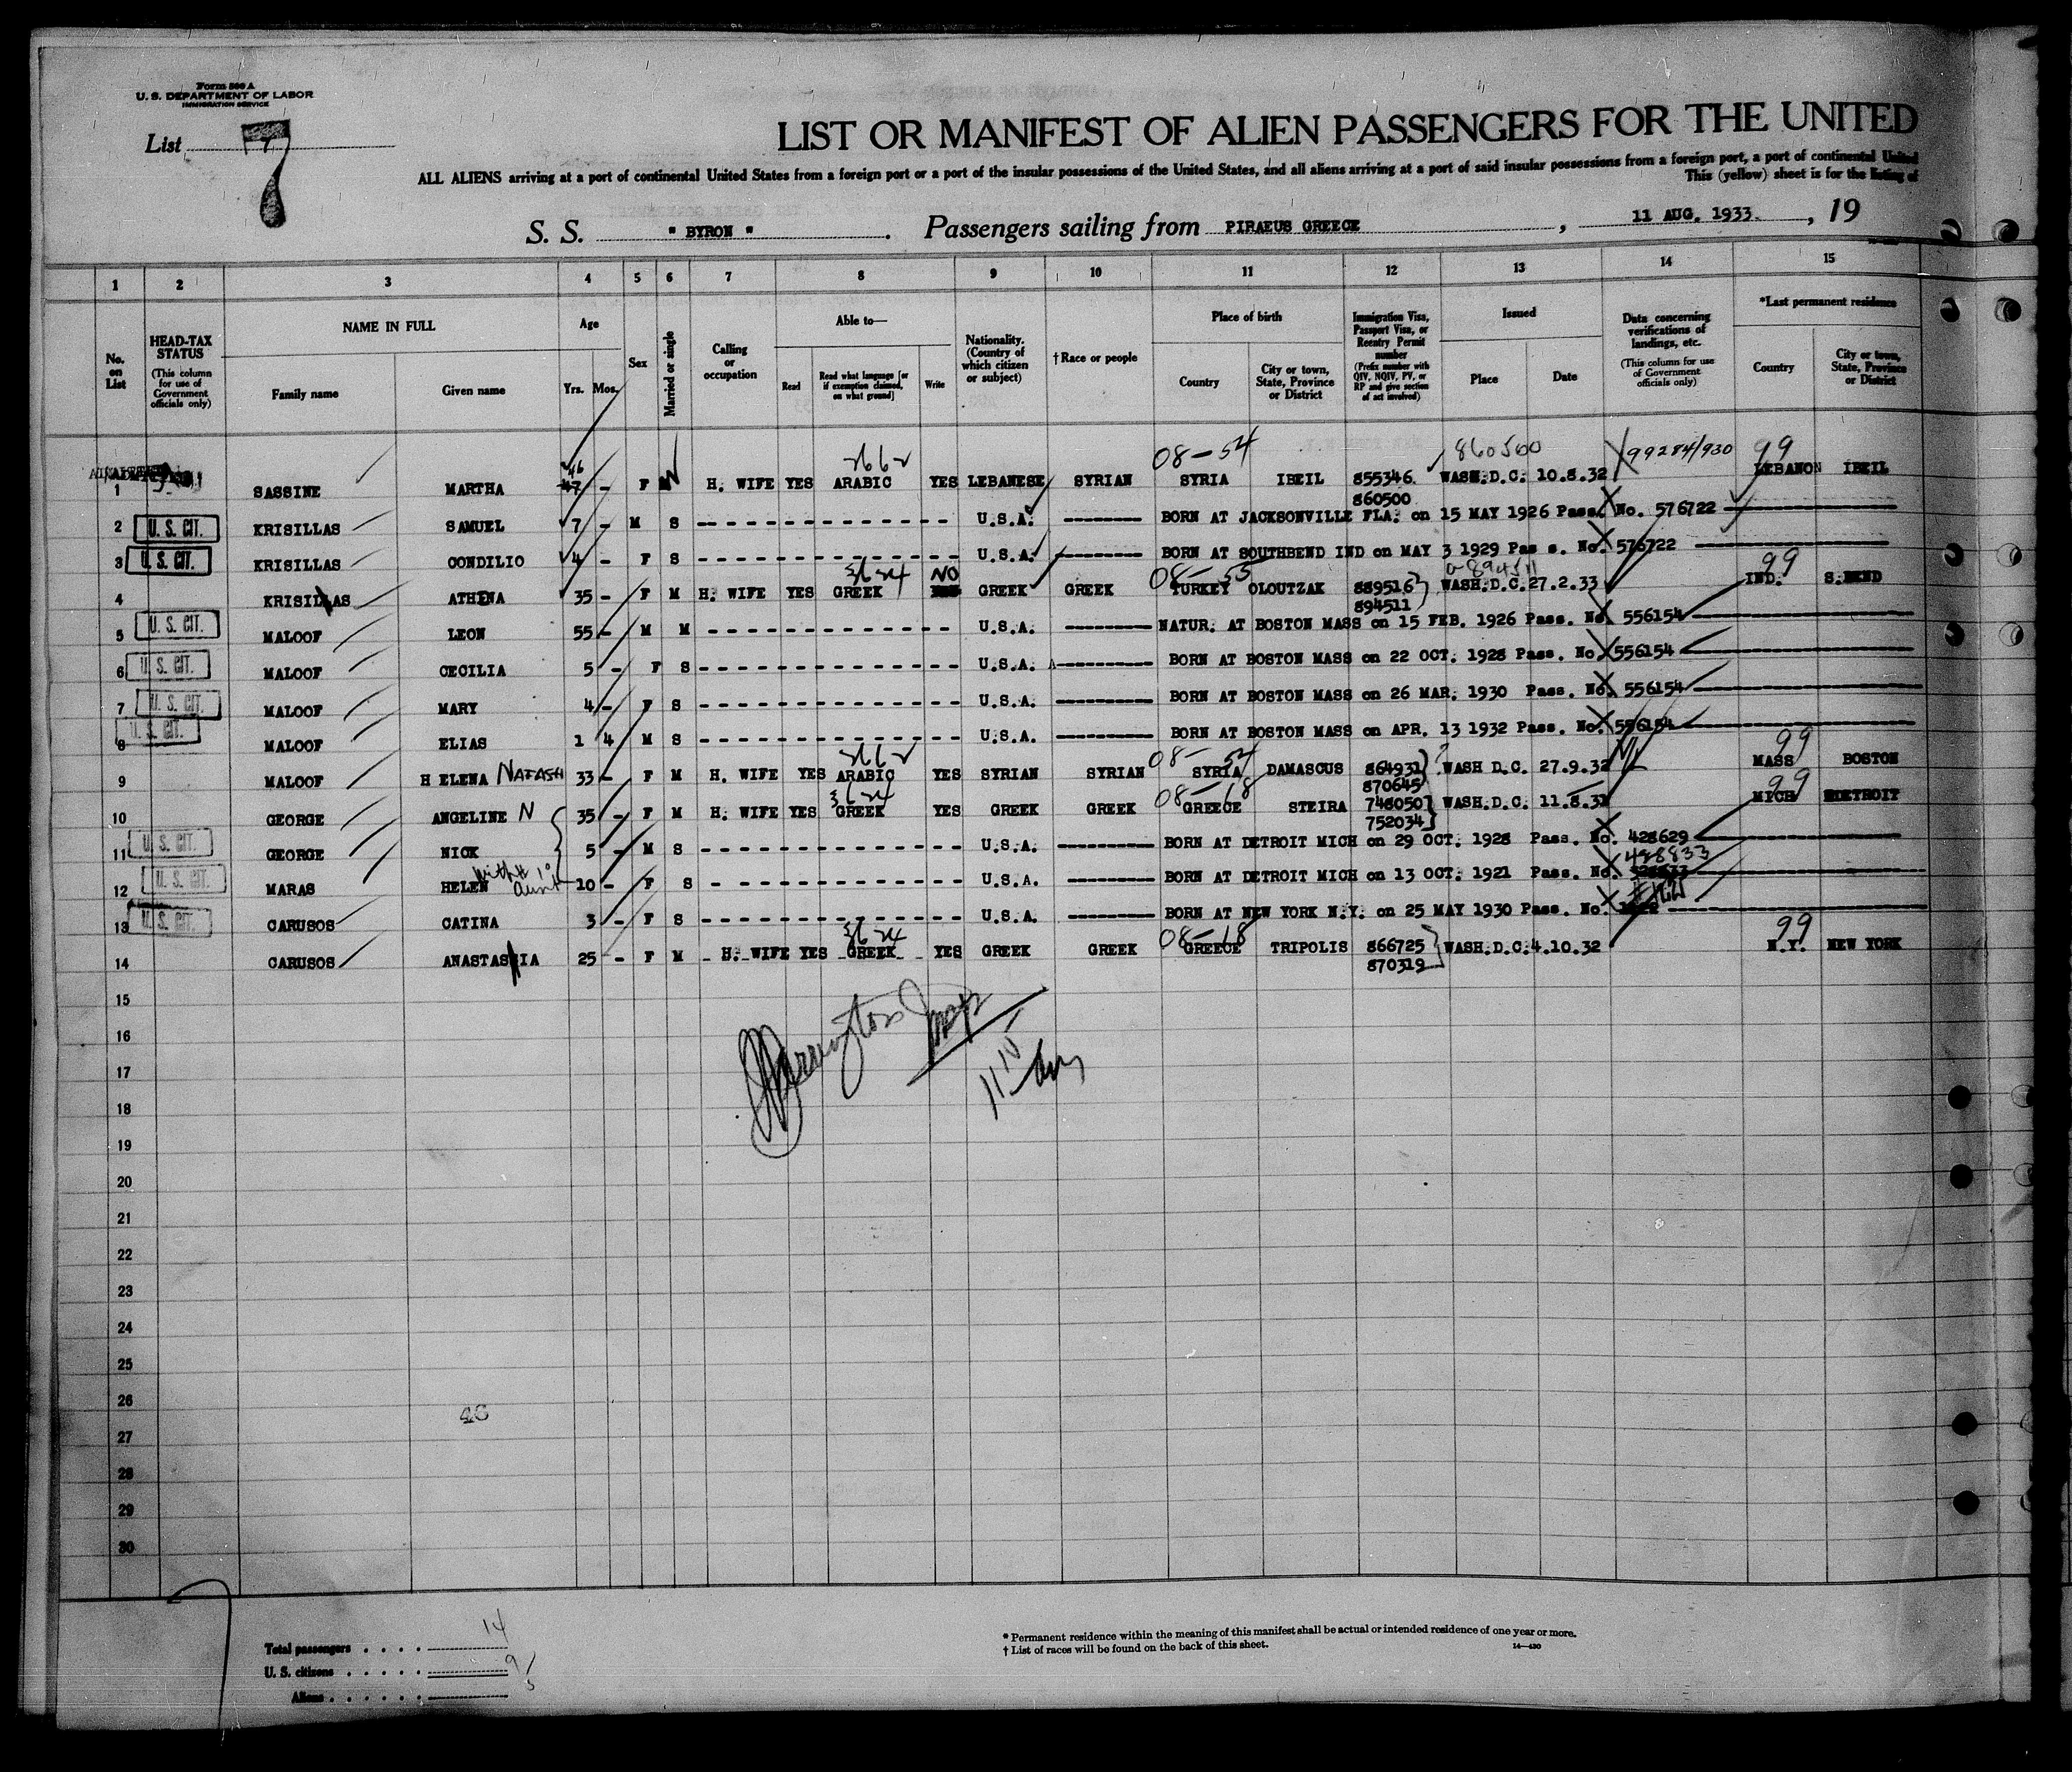 Form 500 A
U. S. DEPARTMENT OF LABOR
IMMIGRATION SERVICE
List 7
LIST OR MANIFEST OF ALIEN PASSENGERS FOR THE UNITED
ALL ALIENS arriving at a port of continental United States from a foreign port or a port of the insular possessions of the United States, and all aliens arriving at a port of said insular possessions from a foreign port, a port of continental United
This (yellow) sheet is for the listing of
S. S. " BYRON " . Passengers sailing from PIRAEUS GREECE , 11 AUG. 1933. , 19
1 2 3 4 5 6 7 8 9 10 11 12 13 14 15
No. on List
HEAD-TAX STATUS (This column for use of Government officials only)
NAME IN FULL
Family name Given name
Age
Yrs. Mos.
Sex
Married or single
Calling or occupation
Able to—
Read Read what language [or if exemption claimed, on what ground] Write
Nationality. (Country of which citizen or subject)
†Race or people
Place of birth
Country City or town, State, Province or District
Immigration Visa, Passport Visa, or Reentry Permit number (Prefix number with QIV, NQIV, PV, or RP and give section of act involved)
Issued
Place Date
Data concerning verifications of landings, etc. (This column for use of Government officials only)
*Last permanent residence
Country City or town, State, Province or District
46 2662 08-54 860500 X99284/930 99
1 SASSINE MARTHA 47 - F H. WIFE YES ARABIC YES LEBANESE SYRIAN SYRIA IBEIL 855346 WASH.D.C. 10.8.32 LEBANON IBEIL
860500
2 U. S. CIT. KRISILLAS SAMUEL 7 - M S U.S.A. BORN AT JACKSONVILLE FLA. on 15 MAY 1926 Pass. No. 576722
3 U. S. CIT. KRISILLAS CONDILIO 4 - F S U.S.A. BORN AT SOUTHBEND IND on MAY 3 1929 Pas s. No. 576722
3624 NO 08-55 894511 99
4 KRISILLAS ATHENA 35 - F M H. WIFE YES GREEK GREEK GREEK TURKEY OLOUTZAK 889516 WASH.D.C.27.2.33 IND. S.BEND
894511
5 U. S. CIT. MALOOF LEON 55 - M M U.S.A. NATUR. AT BOSTON MASS on 15 FEB. 1926 Pass. No. 556154
6 U. S. CIT. MALOOF CECILIA 5 - F S U.S.A. BORN AT BOSTON MASS on 22 OCT. 1928 Pass. No. 556154
7 U. S. CIT. MALOOF MARY 4 - F S U.S.A. BORN AT BOSTON MASS on 26 MAR. 1930 Pass. No. 556154
8 U. S. CIT. MALOOF ELIAS 1 4 M S U.S.A. BORN AT BOSTON MASS on APR. 13 1932 Pass. No. 556154
2662 08-54 99
9 MALOOF H ELENA NATASH 33 - F M H. WIFE YES ARABIC YES SYRIAN SYRIAN SYRIA DAMASCUS 864931 WASH D.C. 27.9.32 MASS BOSTON
870645
3624 08-18 99
10 GEORGE ANGELINE N 35 - F M H. WIFE YES GREEK YES GREEK GREEK GREECE STEIRA 748050 WASH.D.C. 11.8.31 MICH DETROIT
752034
11 U. S. CIT. GEORGE NICK 5 - M S U.S.A. BORN AT DETROIT MICH on 29 OCT. 1928 Pass. No. 428629
with 10 aunt 428833
12 U. S. CIT. MARAS HELEN 10 - F S U.S.A. BORN AT DETROIT MICH on 13 OCT. 1921 Pass. No.
13 U. S. CIT. CARUSOS CATINA 3 - F S U.S.A. BORN AT NEW YORK N.Y. on 25 MAY 1930 Pass. No.
3624 08-18 99
14 CARUSOS ANASTASIA 25 - F M H. WIFE YES GREEK YES GREEK GREEK GREECE TRIPOLIS 866725 WASH.D.C.4.10.32 N.Y. NEW YORK
870319
15
16
17
18
19
20
21
22
23
24
25
26
27
28
29
30
46
Total passengers . . . . 14
U. S. citizens . . . . . 9
Aliens . . . . . . 5
* Permanent residence within the meaning of this manifest shall be actual or intended residence of one year or more.
† List of races will be found on the back of this sheet. 14—430